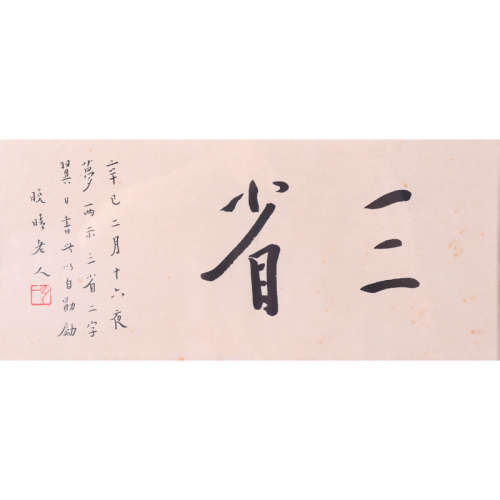 三省
辛巳二月十六夜
夢兩示三省二字
翼日書此以自勗勵
晚晴老人